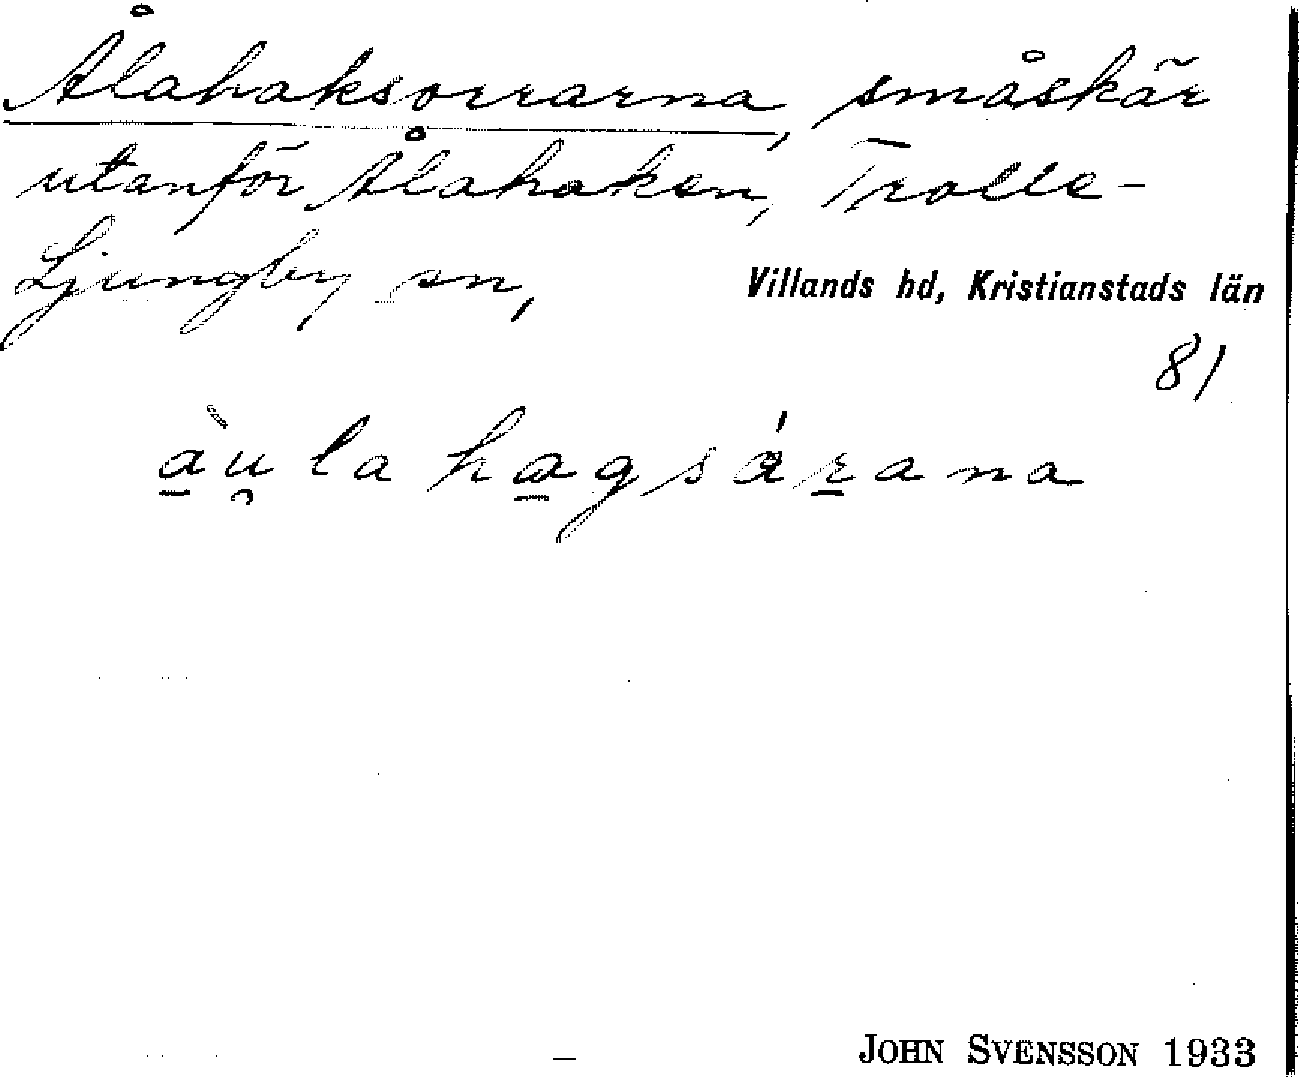 Ålahaksorrarna, småskär
utanför Ålahaken, Trolle-
Ljungby sn,
Villands hd, Kristianstads län
81
àu̯la hagsárana
JOHN SVENSSON 1933